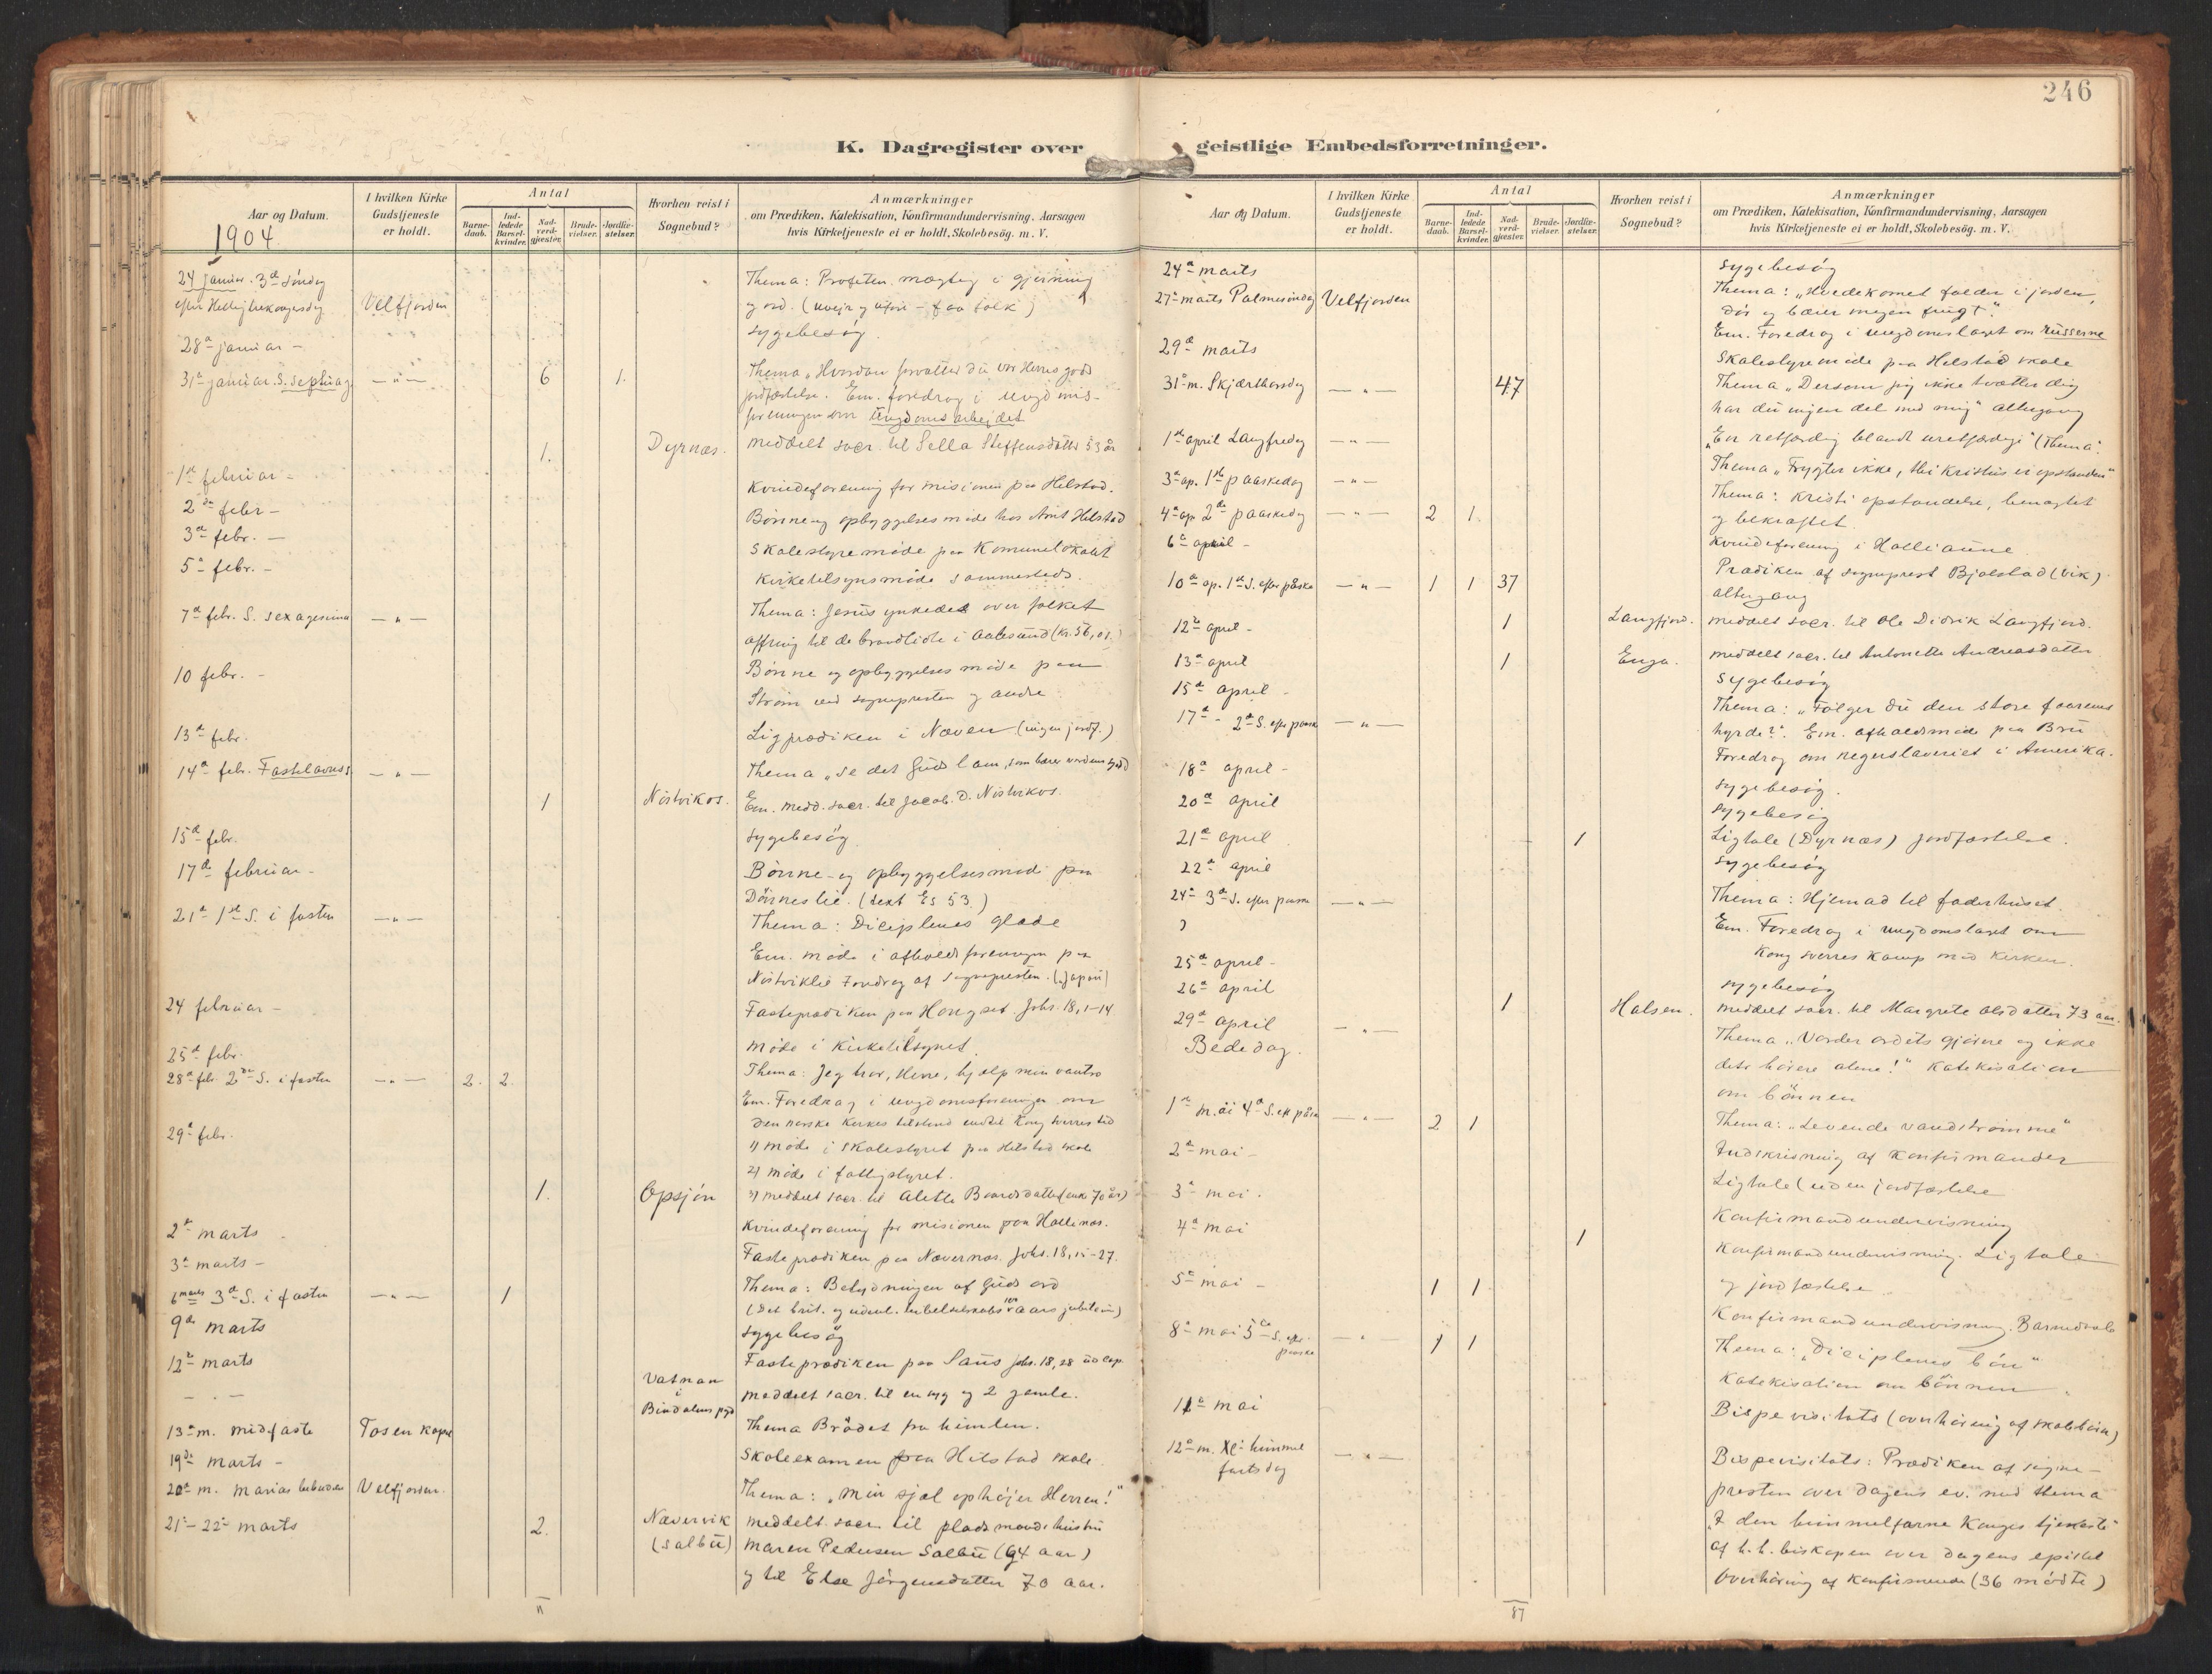 246
K. Dagregister over geistlige Embedsforretninger.
Aar og Datum.
I hvilken Kirke Gudstjeneste er holdt.
Antal
Barnedaab.
Indledede Barselkvinder.
Nadverdgjester.
Brudevielser.
Jordfæstelser.
Hvorhen reist i Sognebud?
Anmærkninger
om Prædiken, Katekisation, Konfirmandundervisning, Aarsagen
hvis Kirketjeneste ei er holdt, Skolebesøg. m. V.
1904
24 januar. 3die søndag Thema: Profeten mægtig i gjerning
efter Hellig trekongersdag Velfjorden og ord. (uveir og uføre - faa folk)
28de januar - sygebesøg.
31te januar. S. septuag. — " — 6 1. Thema "Hvordan forvalter du vor Herres gods
jordfæstelse. Em. foredrag i ungd. mis-
foreningen om Ungdomsarbejdet
1. Dyrnæs. meddelt sacr. til Sella Steffensdatter 53 år
1ste februar - Kvindeforening for misionen paa Helstad.
2den febr - Bønne og opbyggelsesmøde hos Arnt Helstad
3de febr. - Skolestyremøde paa Komunelokalet
5te febr. - Kirketilsynsmøde sammesteds.
7de febr. S. sexagesima — " — Thema: Jesus ynkedes over folket
offring til de brandlidte i Aalesund (kr. 56,01.)
10 febr. - Bønne og opbyggelses møde paa
Strøm ved sognepresten og andre.
13de febr. Ligprædiken i Næven (ingen jordf.)
14de feb. Fastelavnss — " — Thema "se det Guds lam, som bærer verdens synd
1 Nistvikos. Em. medd. sacr. til Jacob D. Nistvikos.
15de febr. sygebesøg
17de februar - Bønne- og opbyggelsesmøde paa
Dønneslie. (text Es 53.)
21de 1ste S. i fasten — " — Thema: Diciplenes glæde
Em. møde i afholdsforeningen paa
Nistviklie Foredrag af sognepresten. (Japan)
24 februar - Fasteprædiken paa Hongset Johs. 18, 1-14
25de febr. Møde i Kirketilsynet.
28de feb. 2den S. i fasten — " — 2. 2. Thema: Jeg tror, Herre, hjælp min vantro
Em. Foredrag i ungdomsforeningen om
den norske kirkes tilstand indtil kong Sverres tid
29de febr. 1) møde i skolestyret paa Helstad skole
2) møde i fattigstyret.
1. Opsjøn 3) meddelt sacr. til Aletta Baardsdatter (enke 70 år)
2den marts Kvindeforening for misionen paa Hallenæs.
3de marts - Fasteprædiken paa Nævernæs. Johs. 18, 15-27.
6 marts 3de S. i fasten — " — 1 Thema: Betydningen af Guds ord
(Det brit. og udenl. bibelselskabs 100 aars jubilæum)
9de marts sygebesøg
12te marts Fasteprædiken paa Saus Johs. 18, 28 ud cap.
— " — Vatnan i Bindalens pgd meddelt sacr. til en syg og 2 gamle.
13de m. midfaste Tosen kapel Thema Brødet fra himlen.
19de marts - Skoleexamen paa Helstad skole
20de m. Marias bebudelse Velfjorden. Thema: "Min sjæl ophøjer Herren!"
21-22de marts 2. Nævervik (salbu) meddelt sacr. til pladsmands hustru
Maren Pedersen Salbu (94 aar)
og til Else Jørgensdatter 70 aar.
11
Aar og Datum.
I hvilken Kirke Gudstjeneste er holdt.
Antal
Barnedaab.
Indledede Barselkvinder.
Nadverdgjester.
Brudevielser.
Jordfæstelser.
Hvorhen reist i Sognebud?
Anmærkninger
om Prædiken, Katekisation, Konfirmandundervisning, Aarsagen
hvis Kirketjeneste ei er holdt, Skolebesøg. m. V.
24de marts sygebesøg
27de marts Palmesøndag Velfjorden Thema: "Hvedekornet falder i jorden,
dør og bærer megen frugt."
Em. Foredrag i ungdomslaget om russerne
29de marts Skolestyremøde paa Helstad skole
31te m. Skjærthorsdag — " — 47 Thema "Dersom jeg ikke tvætter dig
har du ingen del med mig" altergang
1ste april Langfredag — " — "En retfærdig blandt uretfærdige" (Thema).
3de ap. 1ste paaskedag — " — Thema "Frygter ikke, thi Kristus er opstanden"
4de ap. 2den paaskedag — " — 2 1. Thema: Kristi opstandelse, benægtet
og bekræftet.
6te april - Kvindeforening i Hollianne.
10de ap. 1ste S. efter påske — " — 1 1 37 Prædiken af sogneprest Bjølstad (Vik).
altergang
12te april - 1 Langfjord. meddelt sacr. til Ole Didrik Langfjord.
13de april 1 Enga. meddelt sacr. til Antonette Andreasdatter
15de april - sygebesøg
17de - 2den S. efter paaske — " — Thema: "Følger du den store faarenes
hyrde?". Em. afholdsmøde paa Bru
Foredrag om negerslaveriet i Amerika.
18de april - sygebesøg.
20de april sygebesøg
21de april 1 Ligtale (Dyrnæs) jordfæstelse.
22de april sygebesøg
24de 3de S. efter paaske — " — Thema: Hjemad til faderhuset.
Em. Foredrag i ungdomslaget om
Kong Sverres kamp med kirken.
25de april -
26de april sygebesøg
1 Halsen. meddelt sacr. til Margrete Olsdatter 73 aar.
29de april — " — Thema "Vorder ordets gjørere og ikke
Bededag. dets hørere alene!" Katekisation
om bønnen
1ste mai 4de S. eft. påske — " — 2 1 Thema: "Levende vandstrømme"
2den mai - Indskrivning af konfirmander
3de mai. Ligtale (uden jordfæstelse
4de mai Konfirmandundervisning
1 Konfirmandundervisning. Ligtale
og jordfæstelse
5te mai - 1 1 Konfirmandundervisning. Barnedaab
8de mai 5te S. efter paaske — " — 1 1 Thema: "Diciplenes bøn"
Katekisation om bønnen
11te mai Bispevisitats (overhøring af skolebørn)
12te m. Kr. himmelfartsdag — " — Bispevisitats: Prædiken af sogne-
presten over dagens ev. med thema
"I den himmelfarne Konges tjeneste"
af h. h. biskopen over dagens epistel
Overhøring af konfirmerede (36 mødte)
87